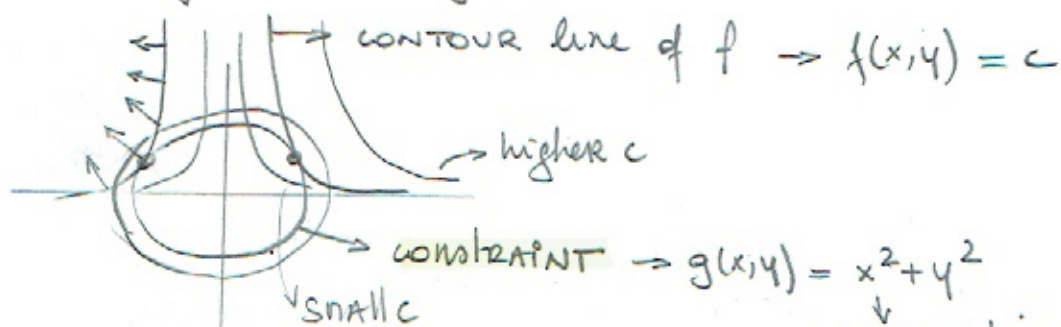 CONTOUR line of f → f(x,y) = c
higher c
CONSTRAINT → g(x,y) = x² + y²
SMALL c